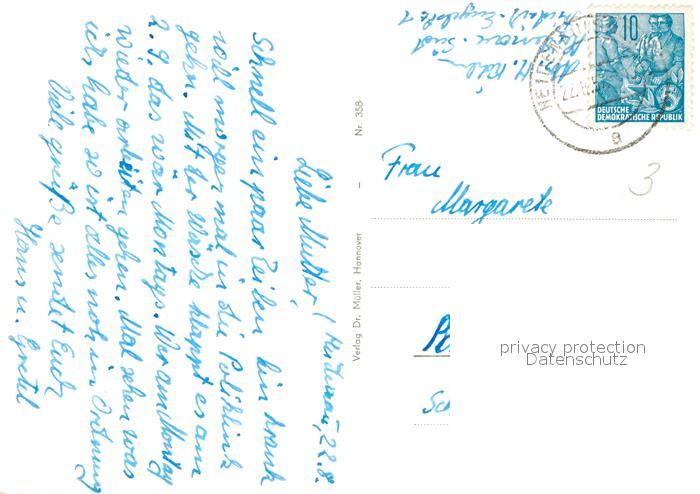 Liebe Mutter! 22.8.
Schnell ein paar Zeilen bin krank
will morgen mal in die Poliklinik
gehn. Mit der Wäsche klappt es am
2.9. das wär Montags. Wer am Montag
wieder arbeiten gehen. Mal sehen was
ich habe so ist alles noch in Ordnung
Viele grüße sendet Euch
Hans u. Gretel
Verlag Dr. Müller, Hannover – Nr. 358
10
DEUTSCHE
DEMOKRATISCHE REPUBLIK
Frau
Margarete
3
privacy protection
Datenschutz